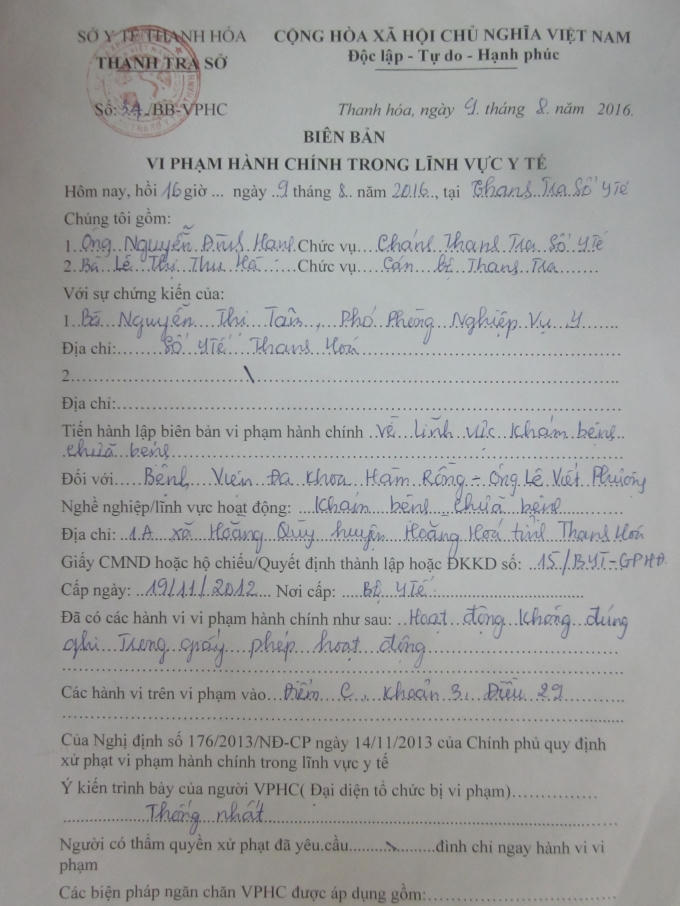 SỞ Y TẾ THANH HÓA CỘNG HÒA XÃ HỘI CHỦ NGHĨA VIỆT NAM
THANH TRA SỞ Độc lập - Tự do - Hạnh phúc
Số: /BB-VPHC Thanh hóa, ngày 9. tháng 8. năm 2016.
BIÊN BẢN
VI PHẠM HÀNH CHÍNH TRONG LĨNH VỰC Y TẾ
Hôm nay, hồi 16 giờ ... ngày 9 tháng 8. năm 2016, tại Thanh Tra Sở Y Tế
Chúng tôi gồm:
1. Ông Nguyễn Đình Chức vụ Chánh Thanh Tra Sở Y Tế
2. Bà Lê Thị Thu Hà Chức vụ Cán bộ Thanh Tra
Với sự chứng kiến của:
1. Bà Nguyễn Thị Tâm, Phó Phòng Nghiệp Vụ Y
Địa chỉ: Sở Y Tế Thanh Hoá
2. \
Địa chỉ:
Tiến hành lập biên bản vi phạm hành chính về lĩnh vực khám bệnh
chữa bệnh
Đối với Bệnh Viện Đa Khoa Hàm Rồng - Ông Lê Viết Phường
Nghề nghiệp/lĩnh vực hoạt động: Khám bệnh, chữa bệnh
Địa chỉ: 1A xã Hoằng Quỳ huyện Hoằng Hoá tỉnh Thanh Hoá
Giấy CMND hoặc hộ chiếu/Quyết định thành lập hoặc ĐKKD số: 15/BYT-GPHĐ
Cấp ngày: 19/11/2012 Nơi cấp: Bộ Y Tế
Đã có các hành vi vi phạm hành chính như sau: Hoạt động không đúng
ghi trong giấy phép hoạt động
Các hành vi trên vi phạm vào Điểm C, Khoản 3, Điều 29
Của Nghị định số 176/2013/NĐ-CP ngày 14/11/2013 của Chính phủ quy định
xử phạt vi phạm hành chính trong lĩnh vực y tế
Ý kiến trình bày của người VPHC( Đại diện tổ chức bị vi phạm)
Thống nhất
Người có thẩm quyền xử phạt đã yêu.cầu \ đình chỉ ngay hành vi vi
phạm
Các biện pháp ngăn chăn VPHC được áp dụng gồm: